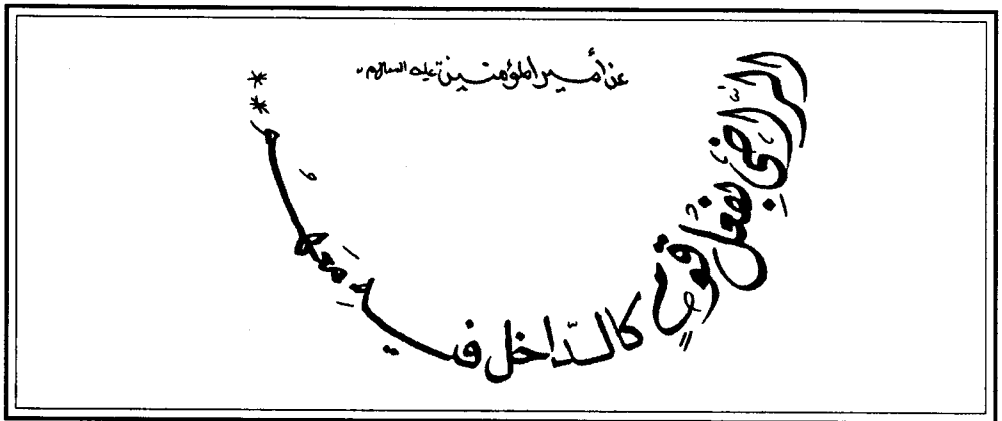 عن أمير المؤمنين عليه السلام
الرَّاضِي بفعل قومٍ كالدّاخل فيهِ مَعهُم